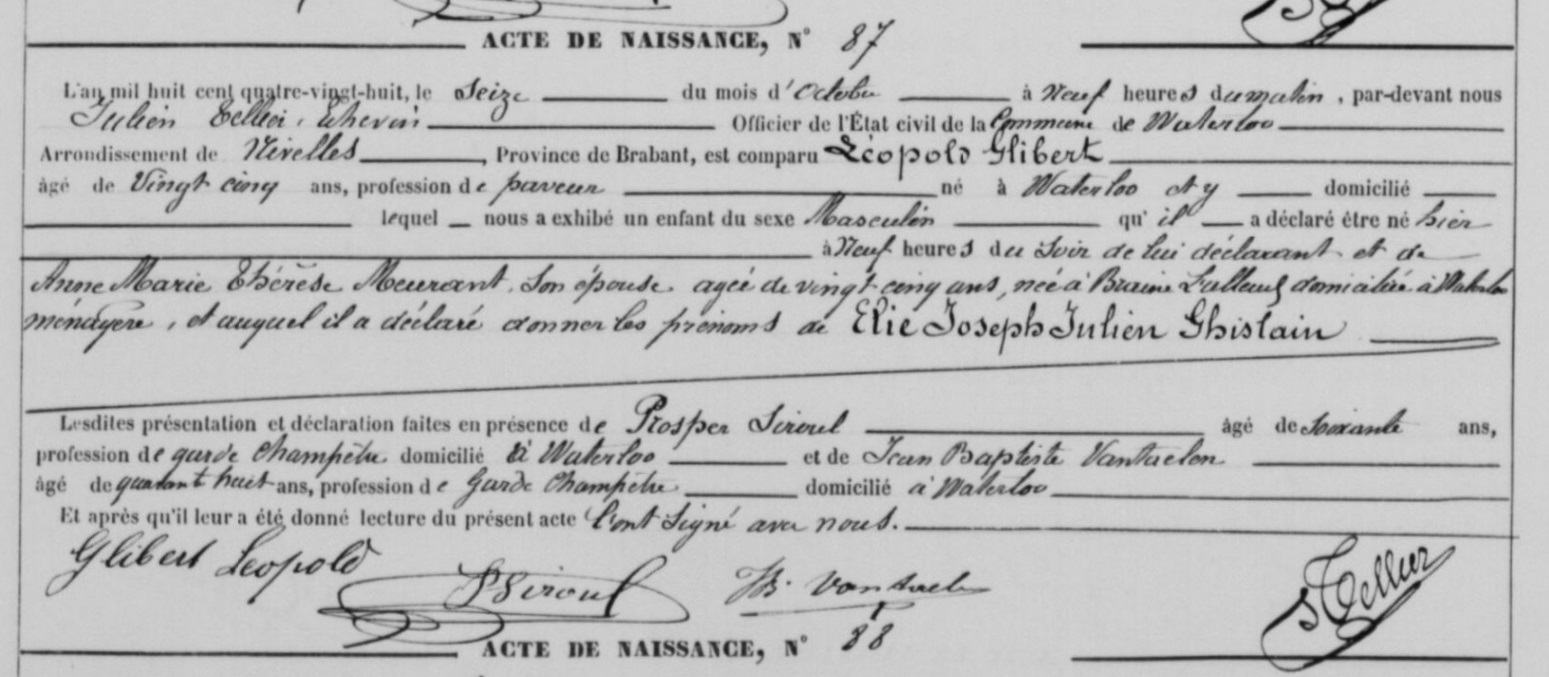 ACTE DE NAISSANCE, N° 87
L'an mil huit cent quatre-vingt-huit, le Seize du mois d'Octobre à Neuf heures du matin, par-devant nous
Julien Tellier, Echevin Officier de l'État civil de la Commune de Waterloo
Arrondissement de Nivelles, Province de Brabant, est comparu Léopold Glibert
âgé de Vingt cinq ans, profession de paveur né à Waterloo et y domicilié
lequel nous a exhibé un enfant du sexe Masculin qu'il a déclaré être né hier
à Neuf heures du Soir de lui déclarant et de
Anne Marie Thérèse Meurant, Son épouse agée de vingt cinq ans, née à Braine L'alleud domiciliée à Waterloo
ménagère, et auquel il a déclaré donner les prénoms de Elie Joseph Julien Ghislain
Lesdites présentation et déclaration faites en présence de Prosper Siroul âgé de Soixante ans,
profession de garde Champêtre domicilié à Waterloo et de Jean Baptiste Vantaelen
âgé de quarant huit ans, profession de Garde Champêtre domicilié à Waterloo
Et après qu'il leur a été donné lecture du présent acte l'ont Signé avec nous.
Glibert Leopold PSiroul JB. Vantaele JTellier
ACTE DE NAISSANCE, N° 88